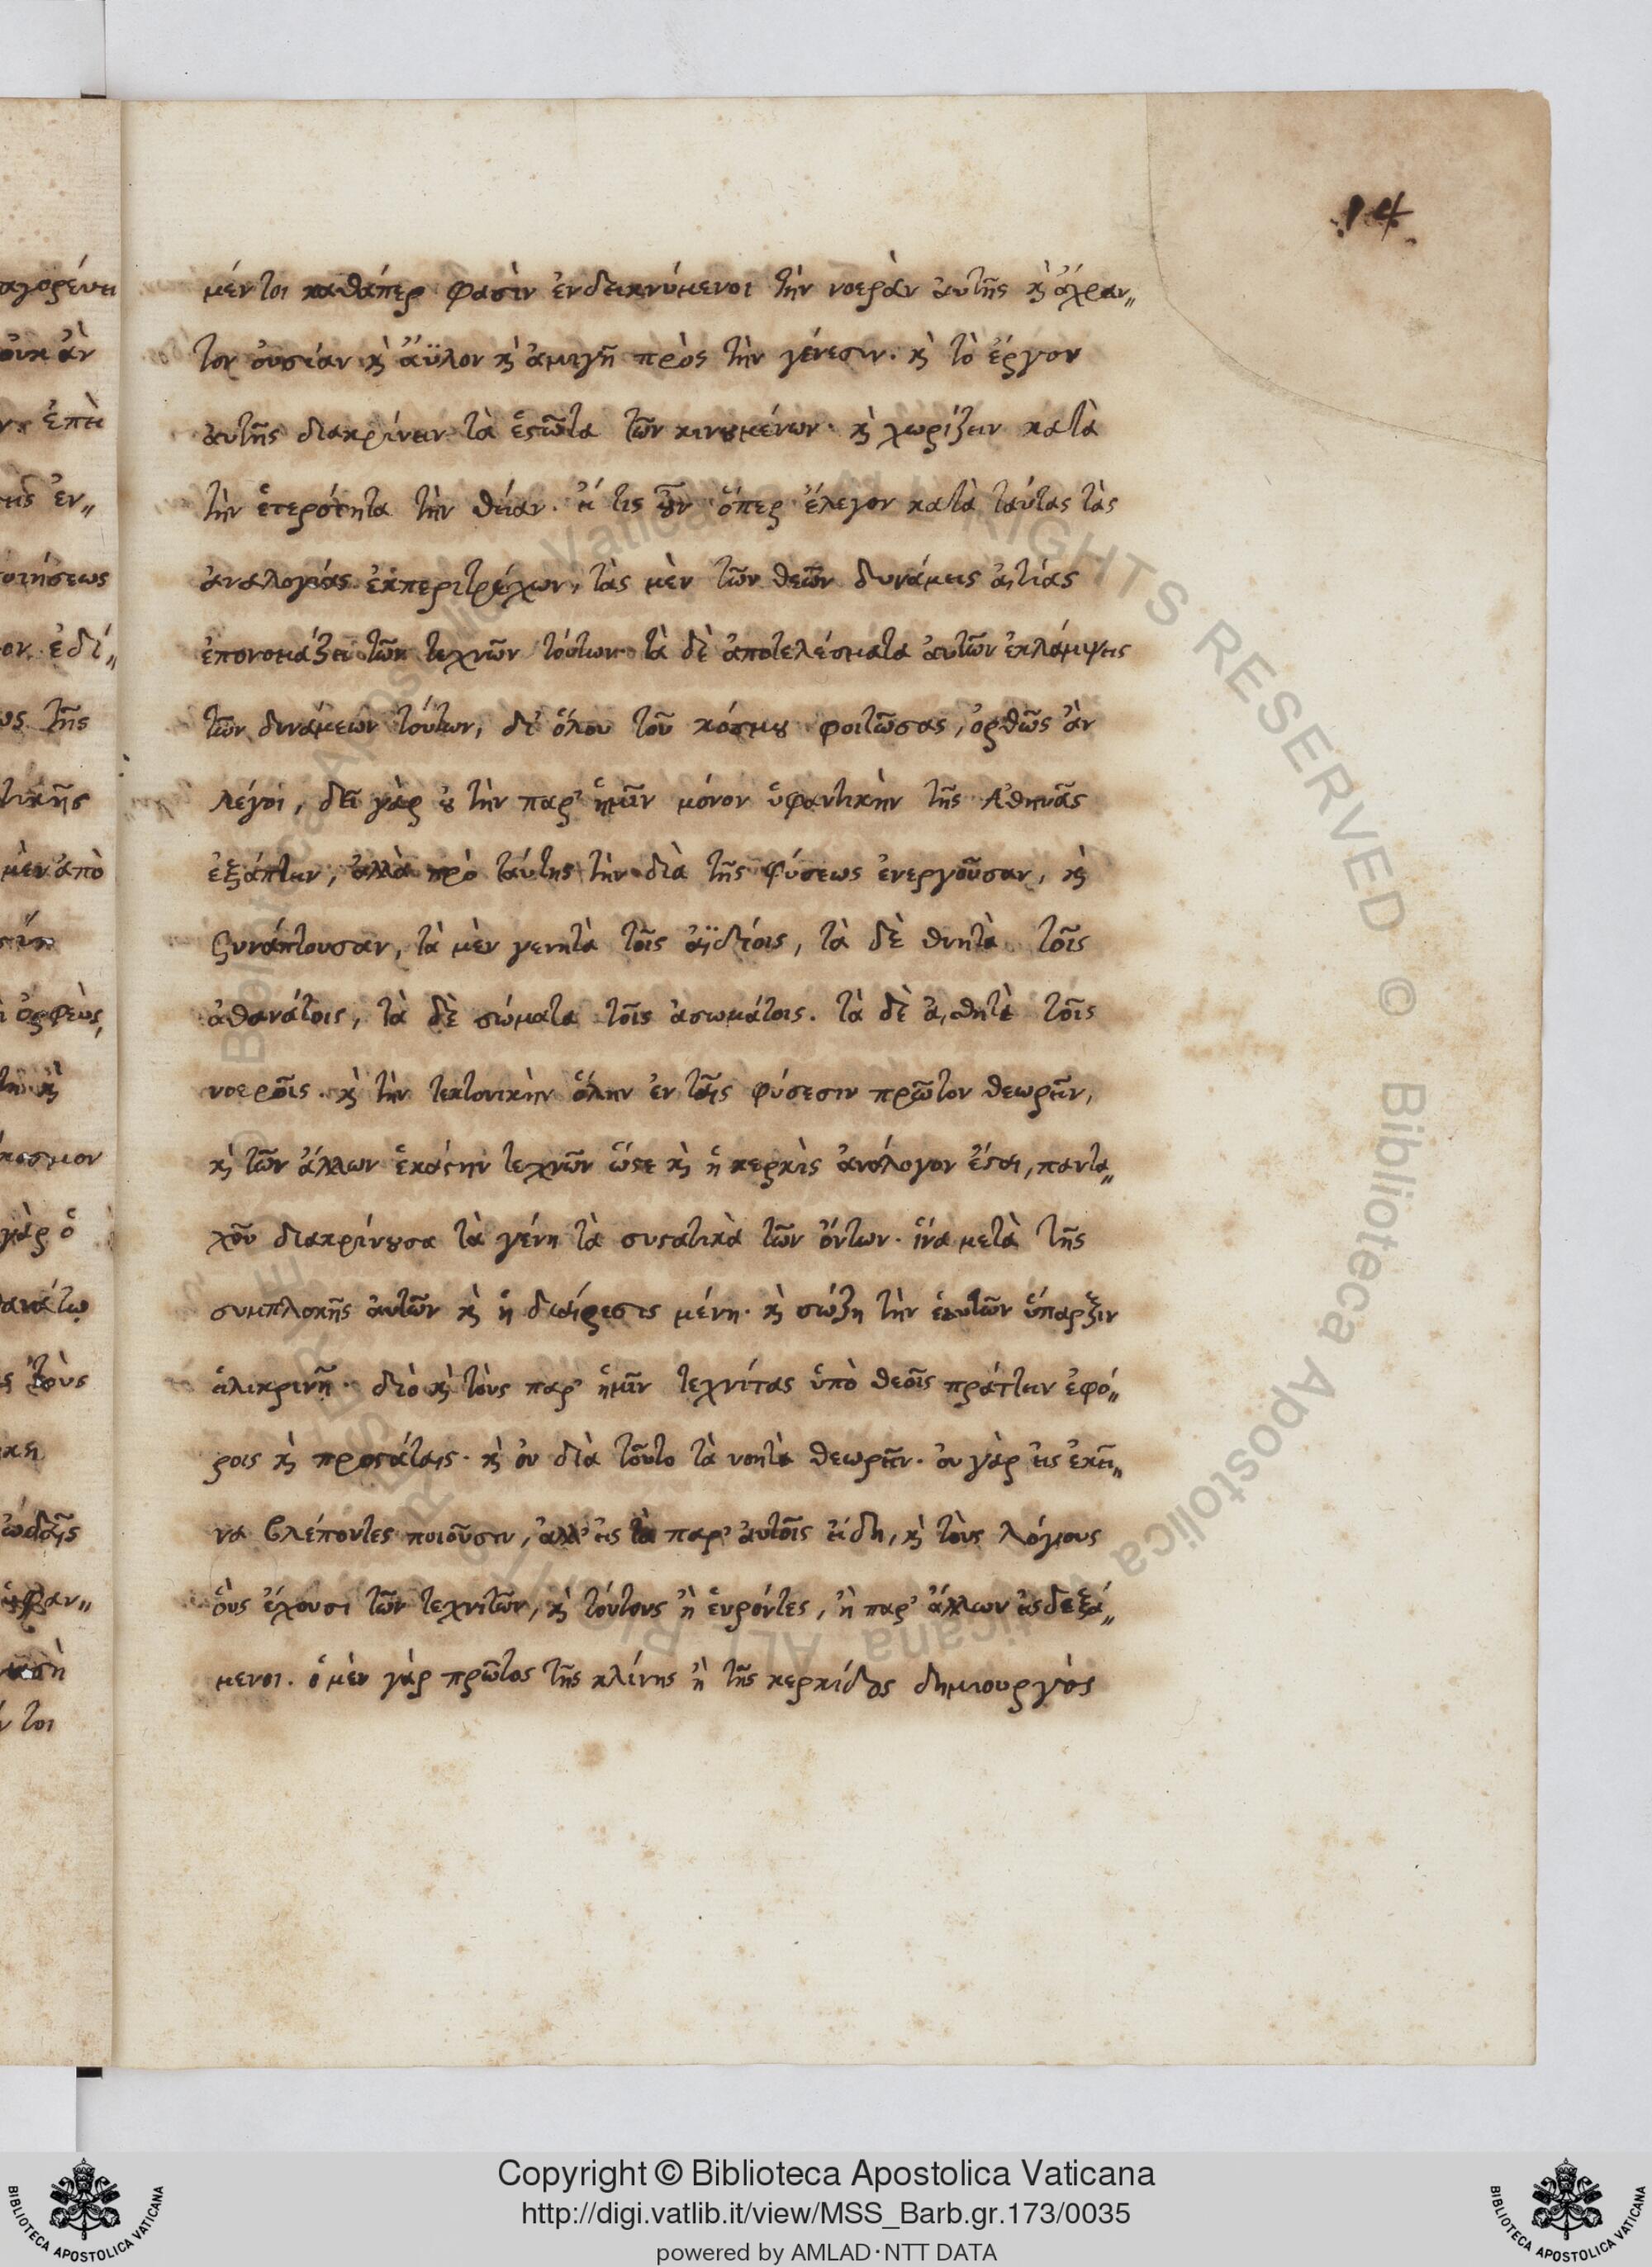 .14.
μέντοι καθάπερ φασὶν ἐνδεικνύμενοι τὴν νοερὰν αὐτῆς κὶ ἄχραν„
τον οὐσίαν κὶ ἄϋλον κὶ ἀμιγῆ πρὸς τὴν γένεσιν. κὶ τὸ ἔργον
αὐτῆς διακρίνειν τὰ ἑστῶτα τῶν κινουμένων· κὶ χωρίζειν κατὰ
τὴν ἑτερότητα τὴν θείαν. εἴ τις οὖν ὅπερ ἔλεγον κατὰ ταύτας τὰς
ἀναλογίας ἐκπεριτρέχων, τὰς μὲν τῶν θεῶν δυνάμεις αἰτίας
ἐπονομάζει τῶν τεχνῶν τούτων· τὰ δὲ ἀποτελέσματα αὐτῶν ἐκλάμψεις
τῶν δυνάμεων τούτων, δι' ὅλου τοῦ κόσμου φοιτῶσας, ὀρθῶς ἂν
λέγοι, δεῖ γὰρ οὐ τὴν παρ' ἡμῖν μόνον ὑφαντικὴν τῆς Ἀθηνᾶς
ἐξάπτειν, ἀλλὰ πρὸ ταύτης τὴν διὰ τῆς φύσεως ἐνεργοῦσαν, κὶ
συνάπτουσαν, τὰ μὲν γενητὰ τοῖς ἀϊδίοις, τὰ δὲ θνητὰ τοῖς
ἀθανάτοις, τὰ δὲ σώματα τοῖς ἀσωμάτοις. τὰ δὲ αἰσθητὰ τοῖς
νοεροῖς. κὶ τὴν τεκτονικὴν ὅλην ἐν ταῖς φύσεσιν πρῶτον θεωρεῖν,
κὶ τῶν ἄλλων ἑκάστην τεχνῶν ὥστε κὶ ἡ κερκὶς ἀνάλογον ἔσται, παντα„
χοῦ διακρίνουσα τὰ γένη τὰ συστατικὰ τῶν ὄντων. ἵνα μετὰ τῆς
συμπλοκῆς αὐτῶν κὶ ἡ διαίρεσις μένη. κὶ σώζη τὴν ἑαυτῶν ὕπαρξιν
εἱλικρινῆ. διὸ κὶ τοὺς παρ' ἡμῖν τεχνίτας ὑπὸ θεοῖς πράττειν ἐφό„
ροις κὶ προστάταις. κὶ οὐ διὰ τοῦτο τὰ νοητὰ θεωρεῖν. οὐ γὰρ εἰς ἐκεῖ„
να βλέποντες ποιοῦσιν, ἀλλ' εἰς τὰ παρ' αὐτοῖς εἴδη, κὶ τοὺς λόγους
οὓς ἔχουσι τῶν τεχνιτῶν, κὶ τούτους ἢ εὑρόντες, ἢ παρ' ἄλλων εἰσδεξά„
μενοι. ὁ μὲν γὰρ πρῶτος τῆς κλίνης ἢ τῆς κερκίδος δημιουργὸς
Copyright © Biblioteca Apostolica Vaticana
http://digi.vatlib.it/view/MSS_Barb.gr.173/0035
powered by AMLAD·NTT DATA
BIBLIOTECA APOSTOLICA VATICANA
BIBLIOTECA APOSTOLICA VATICANA